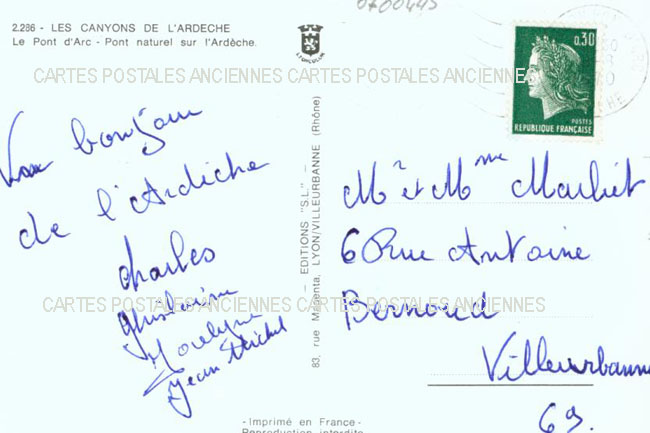 2.286 - LES CANYONS DE L'ARDECHE
Le Pont d'Arc - Pont naturel sur l'Ardèche.
0,30
POSTES
REPUBLIQUE FRANÇAISE
CARTES POSTALES ANCIENNES CARTES POSTALES ANCIENNES
bonjour
de l'Ardèche
Charles
Ghislaine
Jocelyne
Jean Michel
- EDITIONS "S.L." -
83, rue Magenta, LYON/VILLEURBANNE (Rhône)
Mr et Mme
6 Rue Antoine
CARTES POSTALES ANCIENNES CARTES POSTALES ANCIENNES
Bernoud
Villeurbanne
69.
- Imprimé en France -
Reproduction interdite